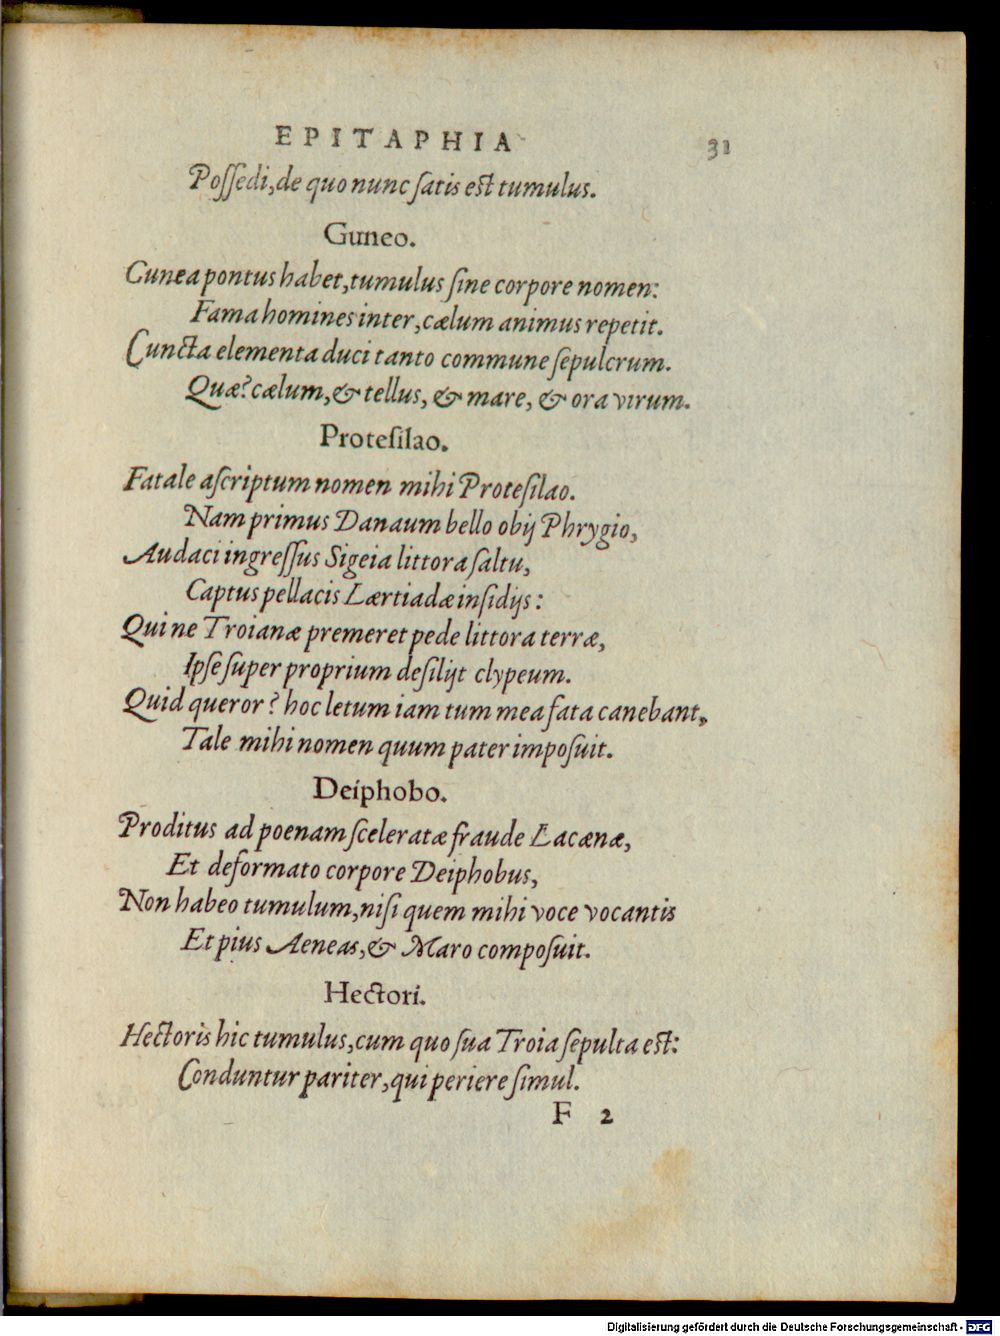 EPITAPHIA 31
Poſſedi, de quo nunc ſatis eſt tumulus.
Guneo.
Gunea pontus habet, tumulus ſine corpore nomen:
Fama homines inter, cælum animus repetit.
Cuncta elementa duci tanto commune ſepulcrum.
Quæ? cælum, & tellus, & mare, & ora virum.
Proteſilao.
Fatale aſcriptum nomen mihi Proteſilao.
Nam primus Danaum bello obij Phrygio,
Audaci ingreſſus Sigeia littora ſaltu,
Captus pellacis Laertiadæ inſidijs:
Qui ne Troianæ premeret pede littora terræ,
Ipſe ſuper proprium deſilijt clypeum.
Quid queror? hoc letum iam tum mea fata canebant,
Tale mihi nomen quum pater impoſuit.
Deiphobo.
Proditus ad poenam ſceleratæ fraude Lacænæ,
Et deformato corpore Deiphobus,
Non habeo tumulum, niſi quem mihi voce vocantis
Et pius Aeneas, & Maro compoſuit.
Hectori.
Hectoris hic tumulus, cum quo ſua Troia ſepulta eſt:
Conduntur pariter, qui periere ſimul.
F 2
Digitalisierung gefördert durch die Deutsche Forschungsgemeinschaft - DFG